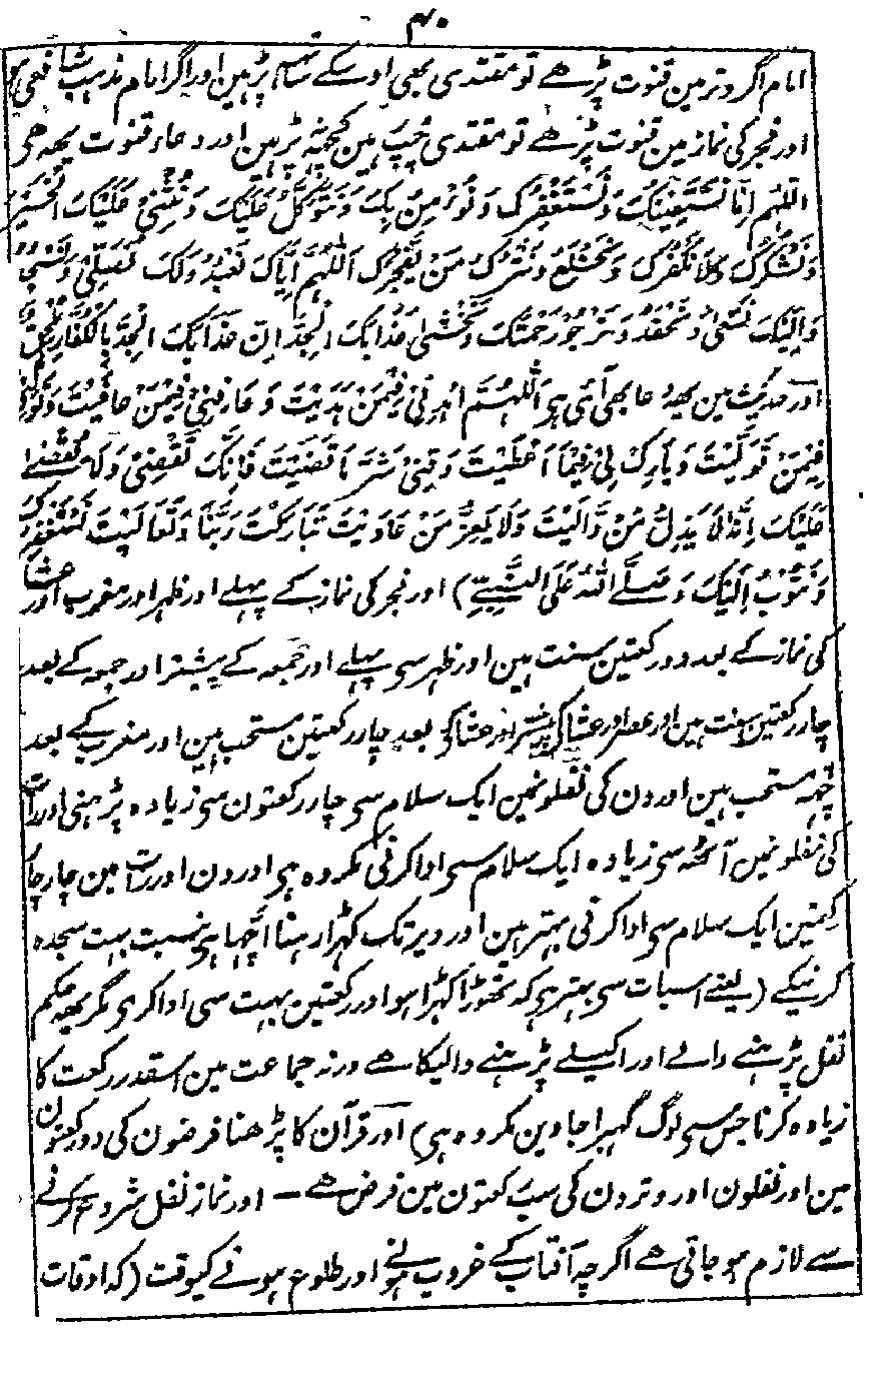 ۴۰
امام اگر وتر مین قنوت پڑھے تو مقتدی بھی اوسکے ساتھ پڑہین اور اگر امام مذہب شافعی ہو
اور فجر کی نماز مین قنوت پڑھے تو مقتدی چپ ہین کچھ نہ پڑہین اور دعاء قنوت یہہ ھی
اَللّٰهُمَّ اِنَّا نَسْتَعِيْنُكَ وَنَسْتَغْفِرُكَ وَنُؤْمِنُ بِكَ وَنَتَوَكَّلُ عَلَيْكَ وَنُثْنِيْ عَلَيْكَ الْخَيْرَ
وَنَشْكُرُكَ وَلَا نَكْفُرُكَ وَنَخْلَعُ وَنَتْرُكُ مَنْ يَّفْجُرُكَ اَللّٰهُمَّ اِيَّاكَ نَعْبُدُ وَلَكَ نُصَلِّيْ وَنَسْجُدُ
وَاِلَيْكَ نَسْعٰى وَنَحْفِدُ وَنَرْجُوْ رَحْمَتَكَ وَنَخْشٰى عَذَابَكَ الْجِدَّ اِنَّ عَذَابَكَ الْجِدَّ بِالْكُفَّارِ مُلْحِقٌ
اور حدیث مین یہہ دعا بھی آئی ہی اَللّٰهُمَّ اهْدِنِيْ فِيْمَنْ هَدَيْتَ وَعَافِنِيْ فِيْمَنْ عَافَيْتَ وَتَوَلَّنِيْ
فِيْمَنْ تَوَلَّيْتَ وَبَارِكْ لِيْ فِيْمَا اَعْطَيْتَ وَقِنِيْ شَرَّ مَا قَضَيْتَ فَاِنَّكَ تَقْضِيْ وَلَا يُقْضٰى
عَلَيْكَ اِنَّهٗ لَا يَذِلُّ مَنْ وَّالَيْتَ وَلَا يَعِزُّ مَنْ عَادَيْتَ تَبَارَكْتَ رَبَّنَا وَتَعَالَيْتَ نَسْتَغْفِرُكَ
وَنَتُوْبُ اِلَيْكَ وَصَلَّى اللّٰهُ عَلَى النَّبِيِّ) اور فجر کی نماز کے پہلے اور ظہر اور مغرب اور عشا
کی نماز کے بعد دو رکعتین سنت ہین اور ظہر سی پہلے اور جمعہ کے پیشتر اور جمعہ کے بعد
چار رکعتین سنت ہین اور عصر اور عشا کی پیشتر اور عشا کی بعد چار رکعتین مستحب ہین اور مغرب کے بعد
چہہ مستحب ہین اور دن کی نفلونمین ایک سلام سی چار رکعتون سی زیادہ پڑہنی اور رات
کی نفلونمین آٹھہ سی زیادہ ایک سلام سی ادا کرنی مکروہ ہی اور دن اور رات مین چار چار
رکعتین ایک سلام سی ادا کرنی بہتر ہین اور دیر تک کہڑا رہنا اچہا ہی بنسبت بہت سجدہ
کرنیکے (یعنے اس بات سی بہتر ہی کہ تھوڑا کہڑا ہو اور رکعتین بہت سی ادا کری مگر یہہ حکم
نفل پڑہنے والے اور اکیلے پڑہنے والیکا ھے ورنہ جماعت مین اسقدر رکعت کا
زیادہ کرنا جس سی لوگ گہبرا جاوین مکروہ ہی) اور قرآن کا پڑھنا فرضون کی دو رکعتون
مین اور نفلون اور وترون کی سب رکعتون مین فرض ھے — اور نماز نفل شروع کرنے
سے لازم ہو جاتی ھے اگرچہ آفتاب کے غروب ہونے اور طلوع ہونے کیوقت (کہ اوقات